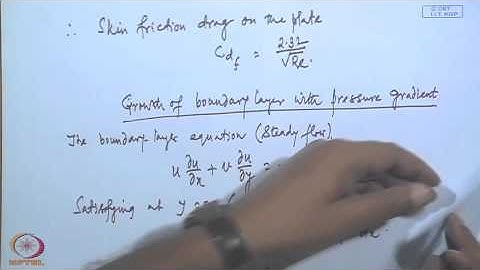 ∴ Skin friction drag on the plate
C_{d_f} = 2.32 / √Re.
Growth of boundary layer with pressure gradient
The boundary layer equation (Steady flow)
u ∂u/∂x + v ∂u/∂y =
Satisfying at y
NPTEL